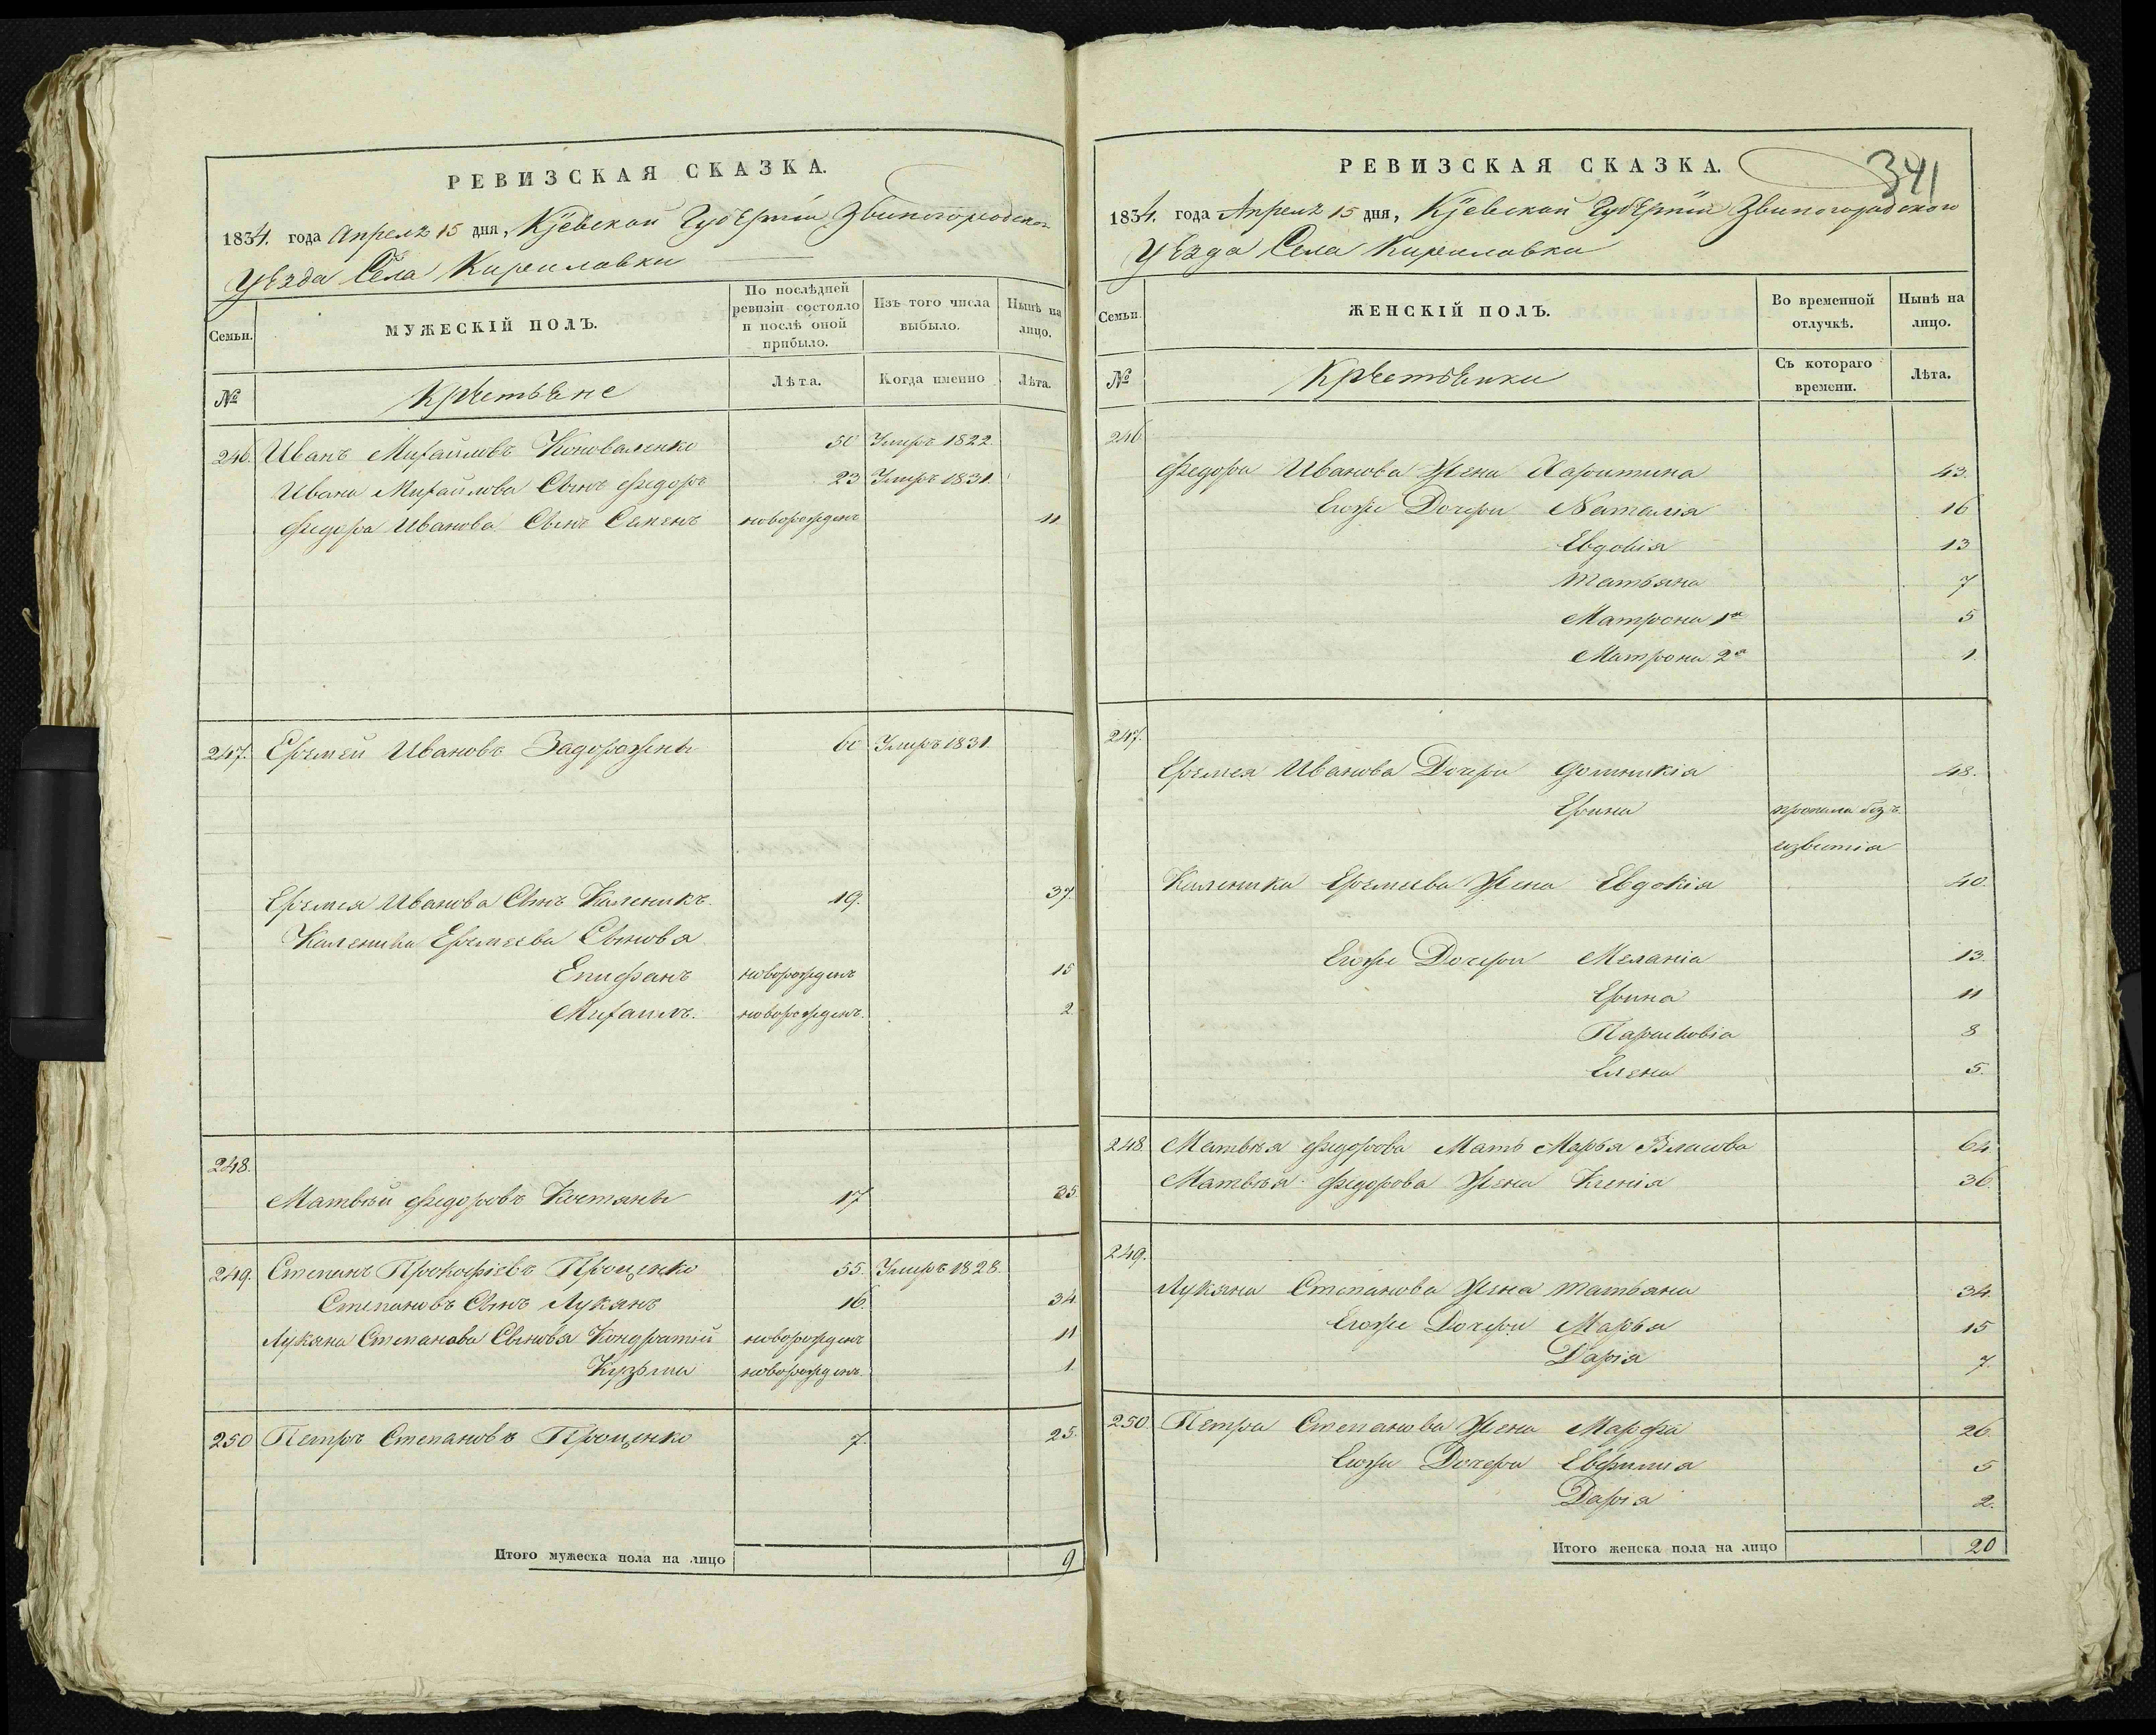 РЕВИЗСКАЯ СКАЗКА.
1834. года Апреля 15 дня, Кіевской Губерніи Звиногородского
Уезда Села Кириловки
Семьи.
МУЖЕСКІЙ ПОЛЪ.
По послѣдней ревизіи состояло и послѣ оной прибыло.
Изъ того числа выбыло.
Нынѣ на лицо.
№
Крестьяне
Лѣта.
Когда именно
Лѣта.
246. Иванъ Михайловъ Коноваленко 50 Умеръ 1822.
Ивана Михайлова Сынъ Федоръ 23 Умеръ 1831.
Федора Иванова Сынъ новорожденъ 11
247. Еремей Ивановъ Задорожны 60 Умеръ 1831
Еремея Иванова Сынъ Каленикъ. 19. 37.
Каленика Еремеева Сыновя
Епифанъ новорожденъ 15
Михаилъ. новорожденъ. 2
248.
Матвѣй Федоровъ Костяны 17 35
249. Степанъ Прокофіевъ Проценко 55. Умеръ 1828.
Степановъ Сынъ Лукянъ 16. 34.
Лукяна Степанова Сыновя Кондратій новорожденъ 11
Кузьма новорожденъ. 1.
250 Петръ Степановъ Проценко 7. 25.
Итого мужеска пола на лицо 9
341
РЕВИЗСКАЯ СКАЗКА.
1834. года Апреля 15 дня, Кіевской Губерніи Звиногородского
Уезда Села Кириловки
Семьи.
ЖЕНСКІЙ ПОЛЪ.
Во временной отлучкѣ.
Нынѣ на лицо.
№
Крестьянки
Съ котораго времени.
Лѣта.
246.
Федора Иванова Жена Харитина 43.
Егоже Дочери Наталія 16
Евдокія 13
Татьяна 7
Матрона 1я 5
Матрона 2я 1.
247.
Еремея Иванова Дочери Домникія 48.
Ерина пропала безъ
извѣстія
Каленика Еремеева Жена Евдокія 40.
Егоже Дочери Меланія 13.
Ерина 11
Парасковія 8
Елена 5.
248. Матвѣя Федорова Мать Марья Власова 64
Матвѣя Федорова Жена Ксенія 36.
249.
Лукяна Степанова Жена Татьяна 34.
Егоже Дочери Марья 15
Дарія 7.
250. Петра Степанова Жена Марфа 26.
Егоже Дочери Евфимія 5
Дарія 2.
Итого женска пола на лицо 20